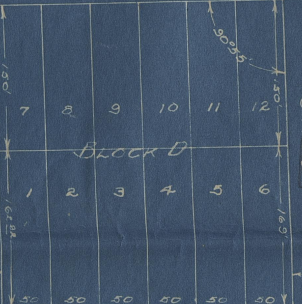 90°55'
150'
150'
7 8 9 10 11 12
BLOCK D
1 2 3 4 5 6
162.82
169'
50 50 50 50 50 50